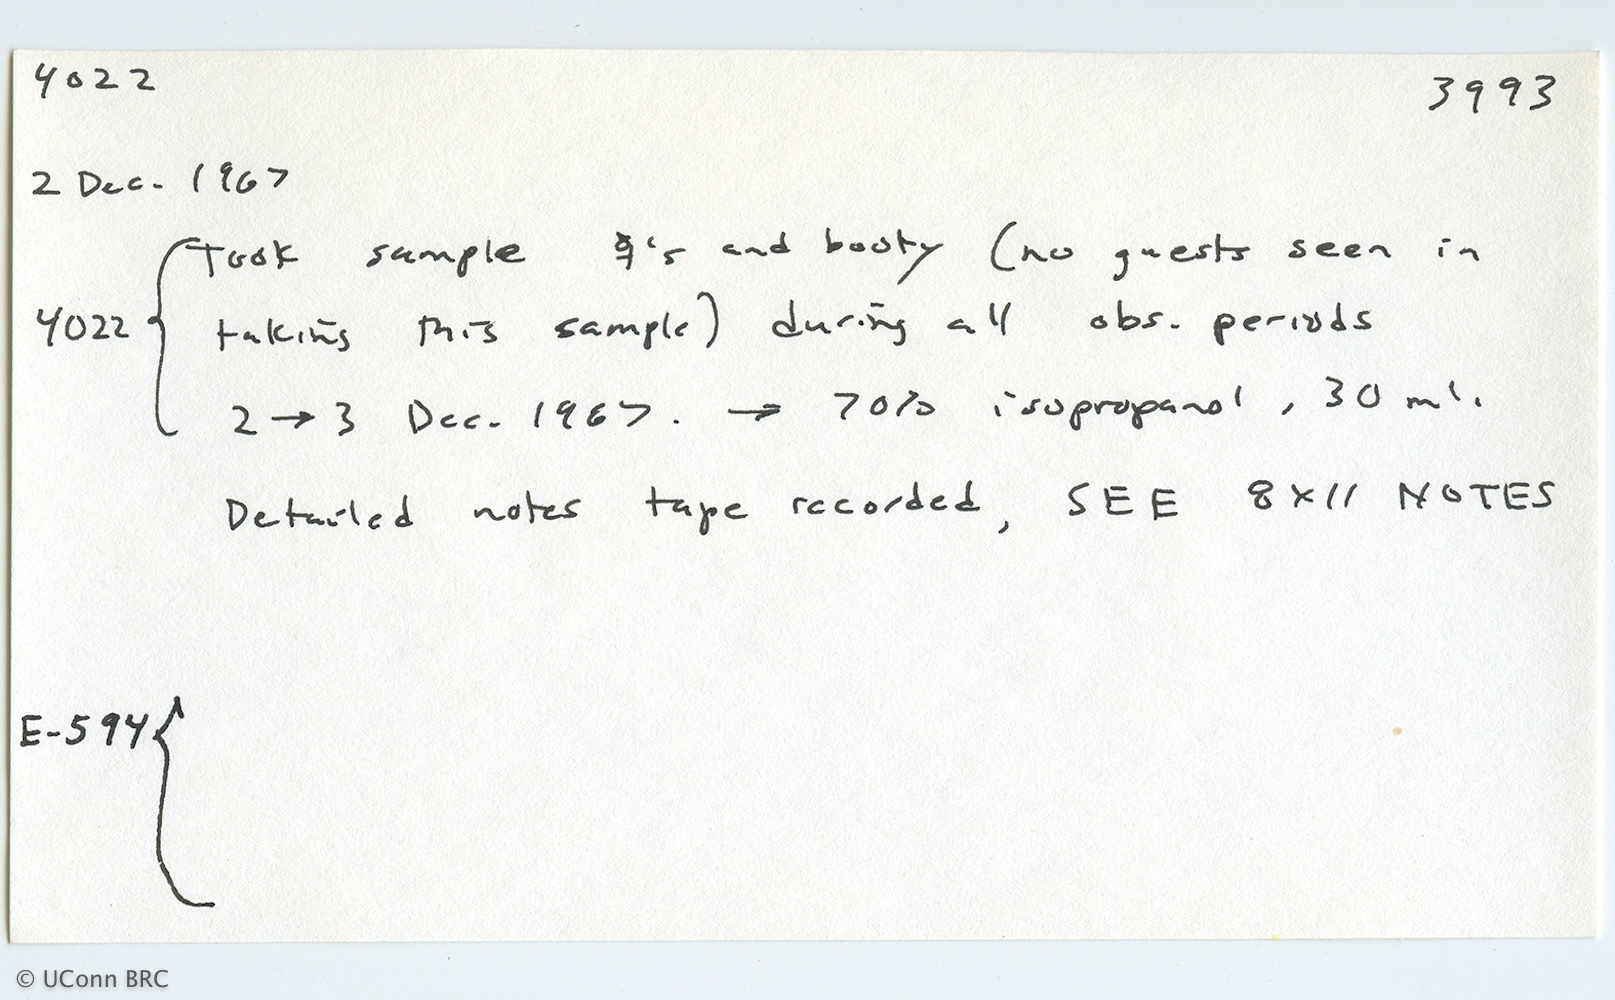 4022 3993
2 Dec. 1967
Took sample ☿'s and booty (no guests seen in
4022 { taking this sample) during all obs. periods
2 → 3 Dec. 1967. → 70% isopropanol, 30 ml.
Detailed notes tape recorded, SEE 8 x 11 NOTES
E-594 {
© UConn BRC